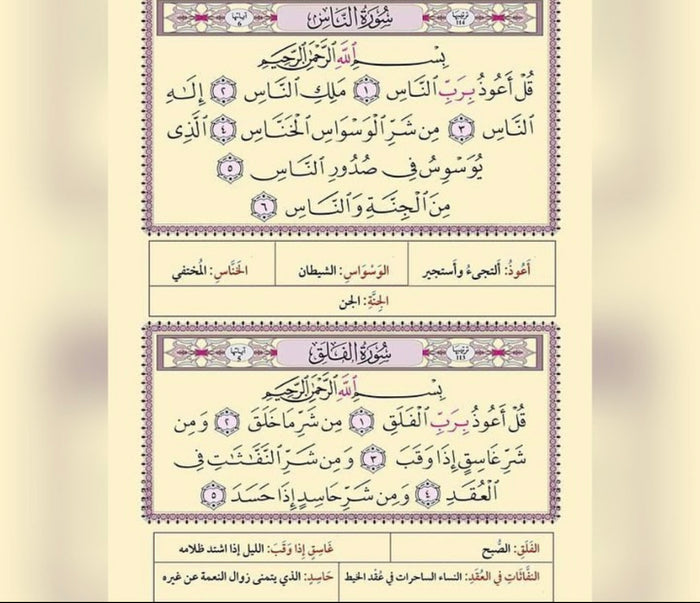 ترتيبها ١١٤ سُورَةُ النَّاسِ آياتها ٦
بِسْمِ اللَّهِ الرَّحْمَٰنِ الرَّحِيمِ
قُلْ أَعُوذُ بِرَبِّ النَّاسِ ١ مَلِكِ النَّاسِ ٢ إِلَٰهِ
النَّاسِ ٣ مِن شَرِّ الْوَسْوَاسِ الْخَنَّاسِ ٤ الَّذِى
يُوَسْوِسُ فِى صُدُورِ النَّاسِ ٥
مِنَ الْجِنَّةِ وَالنَّاسِ ٦
أَعُوذُ: ألتجىءُ وأستجير الوَسْوَاسِ: الشيطان الخَنَّاسِ: المُختفي
الجِنَّةِ: الجن
ترتيبها ١١٣ سُورَةُ الْفَلَقِ آياتها ٥
بِسْمِ اللَّهِ الرَّحْمَٰنِ الرَّحِيمِ
قُلْ أَعُوذُ بِرَبِّ الْفَلَقِ ١ مِن شَرِّ مَا خَلَقَ ٢ وَمِن
شَرِّ غَاسِقٍ إِذَا وَقَبَ ٣ وَمِن شَرِّ النَّفَّاثَاتِ فِى
الْعُقَدِ ٤ وَمِن شَرِّ حَاسِدٍ إِذَا حَسَدَ ٥
الفَلَقِ: الصُّبح غَاسِقٍ إِذَا وَقَبَ: الليل إذا اشتد ظلامه
النَّفَّاثَاتِ فِي العُقَدِ: النساء الساحرات في عُقْد الخيط حَاسِدٍ: الذي يتمنى زوال النعمة عن غيره